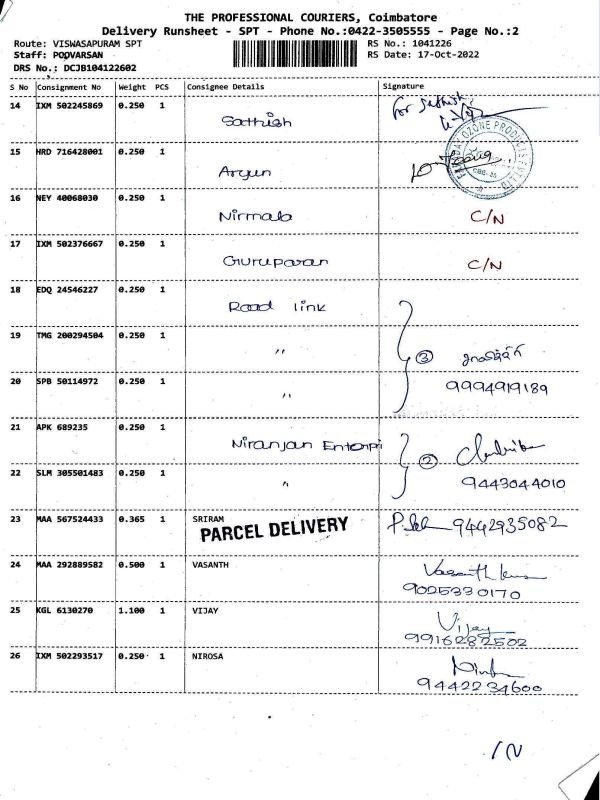 THE PROFESSIONAL COURIERS, Coimbatore
Delivery Runsheet - SPT - Phone No.:0422-3505555 - Page No.:2
Route: VISWASAPURAM SPT RS No.: 1041226
Staff: POOVARSAN RS Date: 17-Oct-2022
DRS No.: DCJB104122602
S No Consignment No Weight PCS Consignee Details Signature
14 IXM 502245869 0.250 1 Sathish for Sathish
15 HRD 716428001 0.250 1 Aryun
OZONE PRODUCTS
16 NEY 40068030 0.250 1 Nirmala C/N
17 IXM 502376667 0.250 1 Guruparan C/N
18 EDQ 24546227 0.250 1 Road link
19 TMG 200294504 0.250 1 " 3
20 SPB 50114972 0.250 1 " 9994919189
21 APK 689235 0.250 1 Niranjan Enterpri 2
22 SLM 305501483 0.250 1 " 9443044010
23 MAA 567524433 0.365 1 SRIRAM 9442935082
PARCEL DELIVERY
24 MAA 292889582 0.500 1 VASANTH
9025330170
25 KGL 6130270 1.100 1 VIJAY Vijay
9916282502
26 IXM 502293517 0.250 1 NIROSA
9442234600